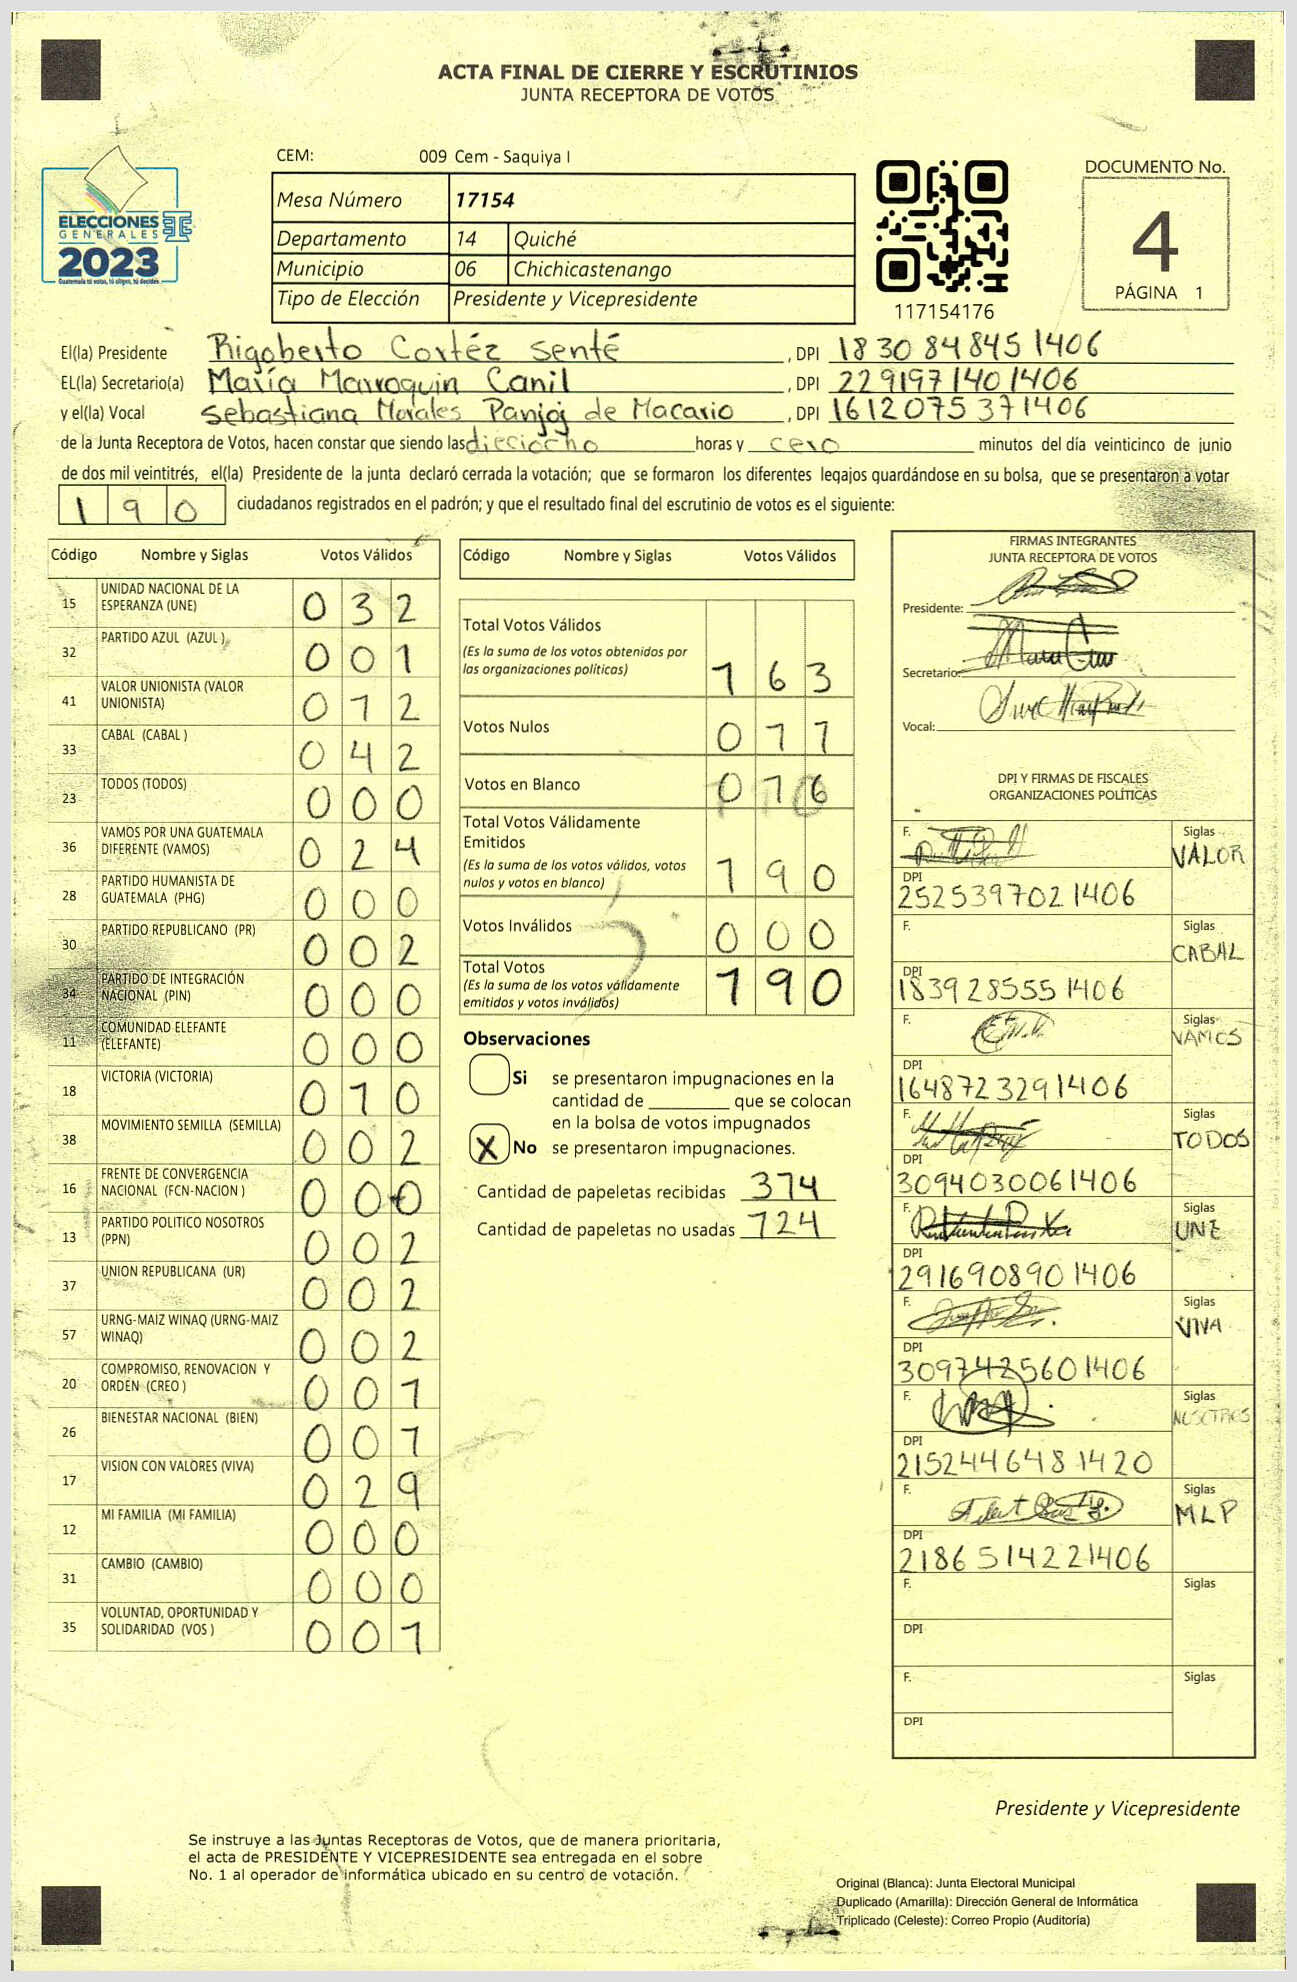 ACTA FINAL DE CIERRE Y ESCRUTINIOS
JUNTA RECEPTORA DE VOTOS
CEM: 009 Cem - Saquiya I
ELECCIONES
GENERALES
2023
Guatemala tú votas, tú eliges, tú decides
Mesa Número 17154
Departamento 14 Quiché
Municipio 06 Chichicastenango
Tipo de Elección Presidente y Vicepresidente
117154176
DOCUMENTO No.
4
PÁGINA 1
El(la) Presidente Rigoberto Cortéz Senté, DPI 1830848451406
EL(la) Secretario(a) María Marroquin Canil, DPI 2291971401406
y el(la) Vocal Sebastiana Morales Panjoj de Macario, DPI 1612075371406
de la Junta Receptora de Votos, hacen constar que siendo las dieciocho horas y cero minutos del día veinticinco de junio
de dos mil veintitrés, el(la) Presidente de la junta declaró cerrada la votación; que se formaron los diferentes legajos guardándose en su bolsa, que se presentaron a votar
190 ciudadanos registrados en el padrón; y que el resultado final del escrutinio de votos es el siguiente:
Código Nombre y Siglas Votos Válidos
15 UNIDAD NACIONAL DE LA ESPERANZA (UNE) 032
32 PARTIDO AZUL (AZUL ) 001
41 VALOR UNIONISTA (VALOR UNIONISTA) 012
33 CABAL (CABAL ) 042
23 TODOS (TODOS) 000
36 VAMOS POR UNA GUATEMALA DIFERENTE (VAMOS) 024
28 PARTIDO HUMANISTA DE GUATEMALA (PHG) 000
30 PARTIDO REPUBLICANO (PR) 002
34 PARTIDO DE INTEGRACIÓN NACIONAL (PIN) 000
11 COMUNIDAD ELEFANTE (ELEFANTE) 000
18 VICTORIA (VICTORIA) 010
38 MOVIMIENTO SEMILLA (SEMILLA) 002
16 FRENTE DE CONVERGENCIA NACIONAL (FCN-NACION ) 000
13 PARTIDO POLITICO NOSOTROS (PPN) 002
37 UNION REPUBLICANA (UR) 002
57 URNG-MAIZ WINAQ (URNG-MAIZ WINAQ) 002
20 COMPROMISO, RENOVACION Y ORDEN (CREO ) 001
26 BIENESTAR NACIONAL (BIEN) 001
17 VISION CON VALORES (VIVA) 029
12 MI FAMILIA (MI FAMILIA) 000
31 CAMBIO (CAMBIO) 000
35 VOLUNTAD, OPORTUNIDAD Y SOLIDARIDAD (VOS ) 001
Código Nombre y Siglas Votos Válidos
Total Votos Válidos
(Es la suma de los votos obtenidos por
las organizaciones políticas) 163
Votos Nulos 011
Votos en Blanco 016
Total Votos Válidamente
Emitidos
(Es la suma de los votos válidos, votos
nulos y votos en blanco) 190
Votos Inválidos 000
Total Votos
(Es la suma de los votos válidamente
emitidos y votos inválidos) 190
Observaciones
Si se presentaron impugnaciones en la
cantidad de ________ que se colocan
en la bolsa de votos impugnados
X No se presentaron impugnaciones.
Cantidad de papeletas recibidas 374
Cantidad de papeletas no usadas 124
FIRMAS INTEGRANTES
JUNTA RECEPTORA DE VOTOS
Presidente:
Secretario:
Vocal:
DPI Y FIRMAS DE FISCALES
ORGANIZACIONES POLÍTICAS
F. Siglas VALOR
DPI 2525397021406
F. Siglas CABAL
DPI 1839285551406
F. Siglas VAMOS
DPI 1648723291406
F. Siglas TODOS
DPI 3094030061406
F. Siglas UNE
DPI 2916908901406
F. Siglas VIVA
DPI 3097425601406
F. Siglas NOSOTROS
DPI 2152446481420
F. Siglas MLP
DPI 2186514221406
F. Siglas
DPI
F. Siglas
DPI
Presidente y Vicepresidente
Se instruye a las Juntas Receptoras de Votos, que de manera prioritaria,
el acta de PRESIDENTE Y VICEPRESIDENTE sea entregada en el sobre
No. 1 al operador de informática ubicado en su centro de votación.
Original (Blanca): Junta Electoral Municipal
Duplicado (Amarilla): Dirección General de Informática
Triplicado (Celeste): Correo Propio (Auditoría)